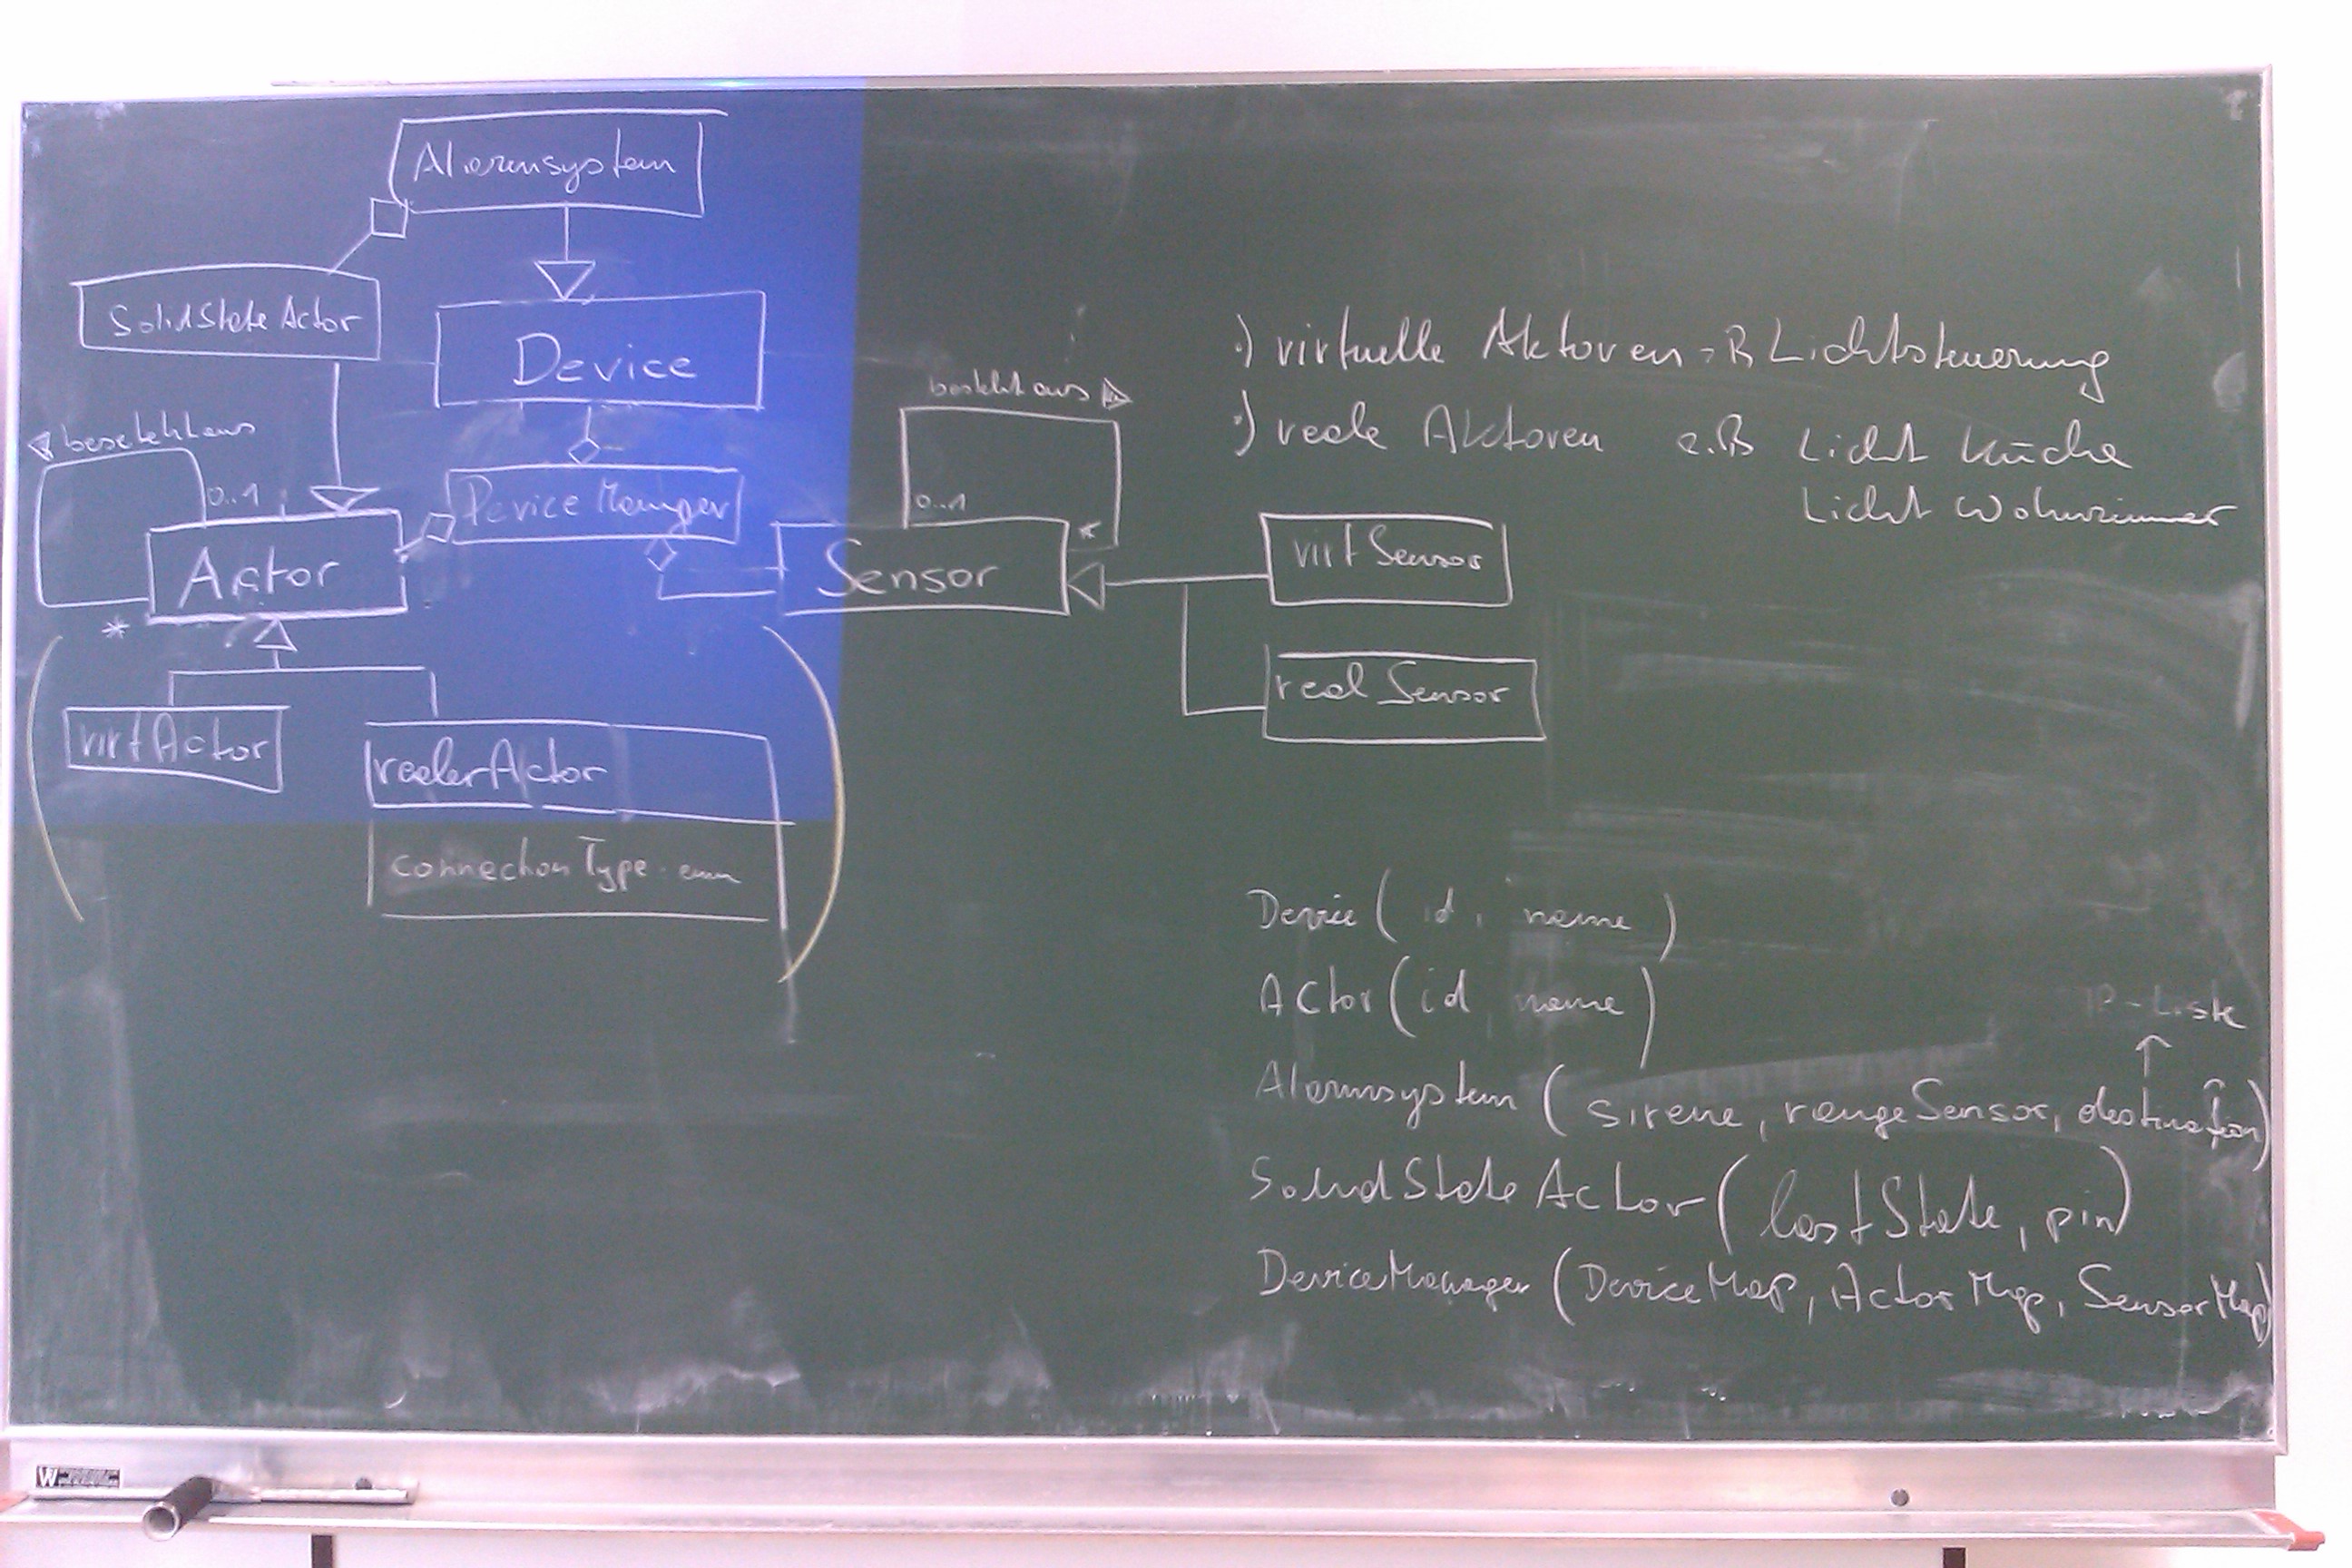 Alarmsystem
SolidState Actor
Device
besteht aus
0..1
Device Manager
Actor
*
virtActor
realerActor
connectionType: enum
besteht aus
0..1
*
Sensor
virtSensor
real Sensor
·) virtuelle Aktoren z.B Lichtsteuerung
·) reale Aktoren z.B Licht Küche
Licht Wohnzimmer
Device ( id, name )
Actor ( id, name )
IP-Liste
↑
Alarmsystem ( sirene, rangeSensor, destination)
SolidState Actor ( lastState, pin)
DeviceManager (DeviceMap, ActorMap, SensorMap)